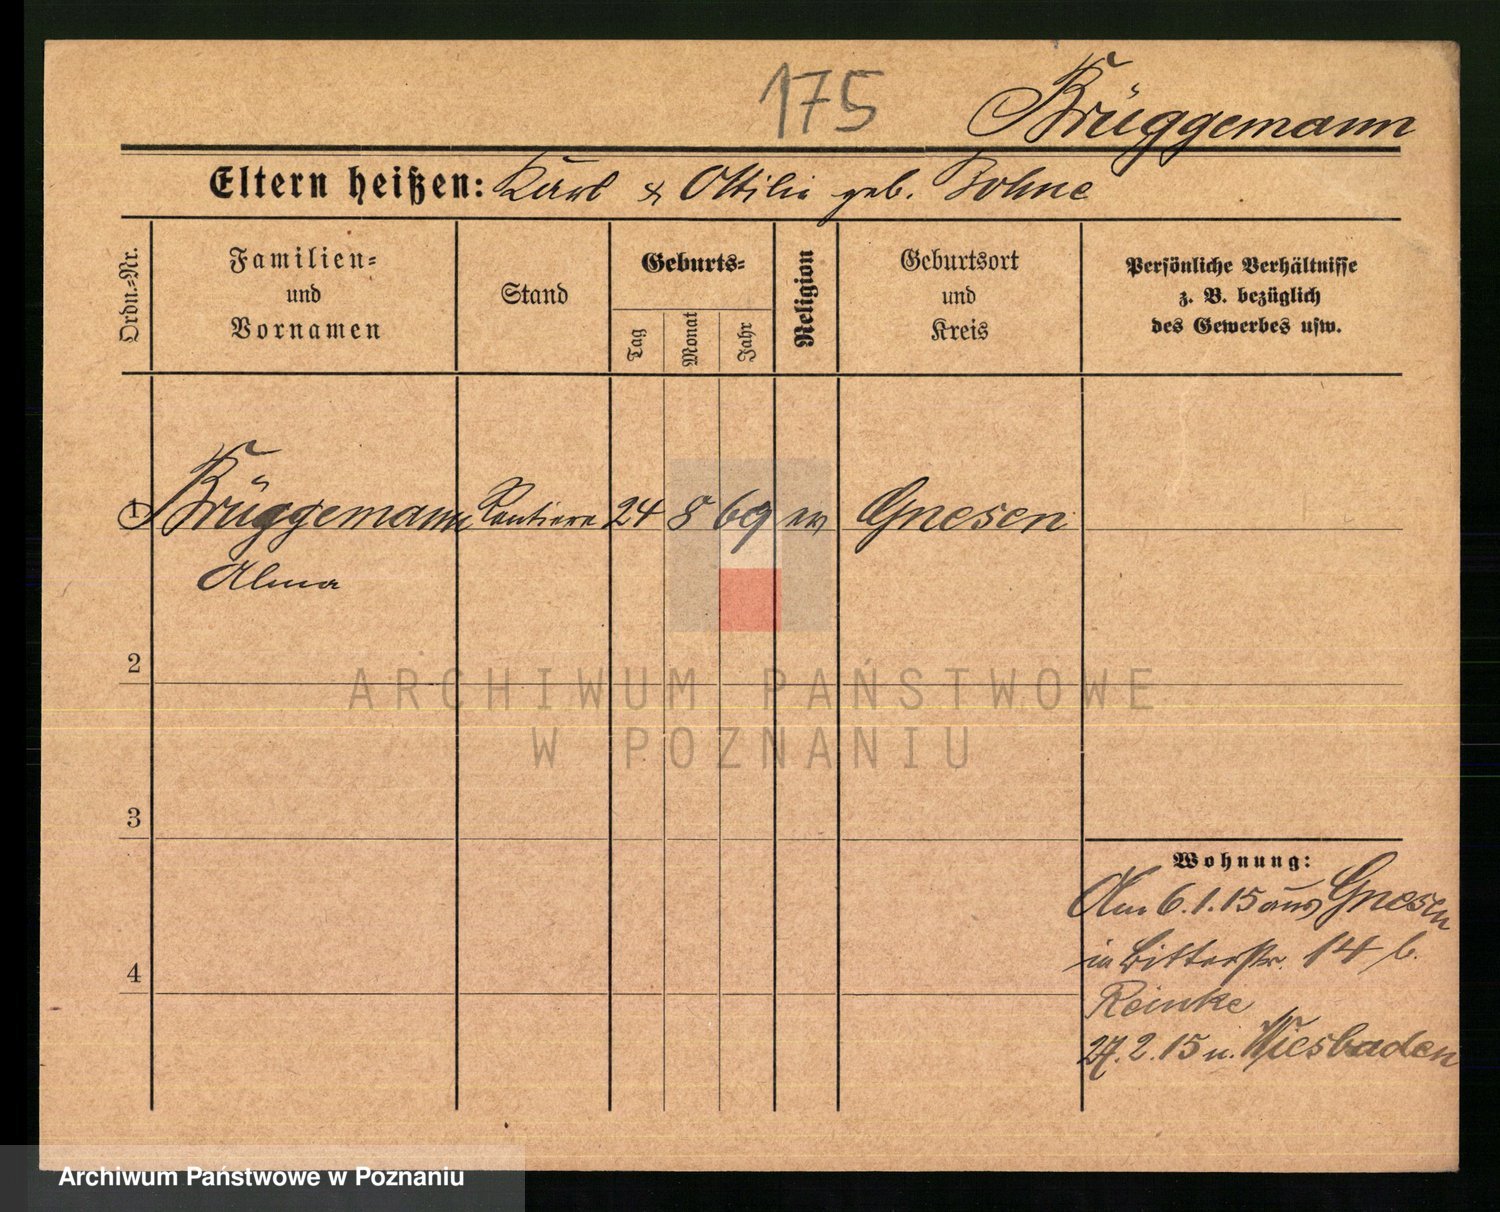 175
Brüggemann
Eltern heißen: Karl & Ottilie geb. Bohne
Ordn.-Nr.
Familien-
und
Vornamen
Stand
Geburts-
Tag
Monat
Jahr
Religion
Geburtsort
und
Kreis
Persönliche Verhältnisse
z. B. bezüglich
des Gewerbes usw.
1 Brüggemann Rentiere 24 8 69 ev Gnesen
Alma
2
3
4
Wohnung:
Am 6.1.15 aus Gnesen
in Ritterstr. 14 b.
Reinke
27.2.15 n. Wiesbaden
ARCHIWUM PAŃSTWOWE
W POZNANIU
Archiwum Państwowe w Poznaniu